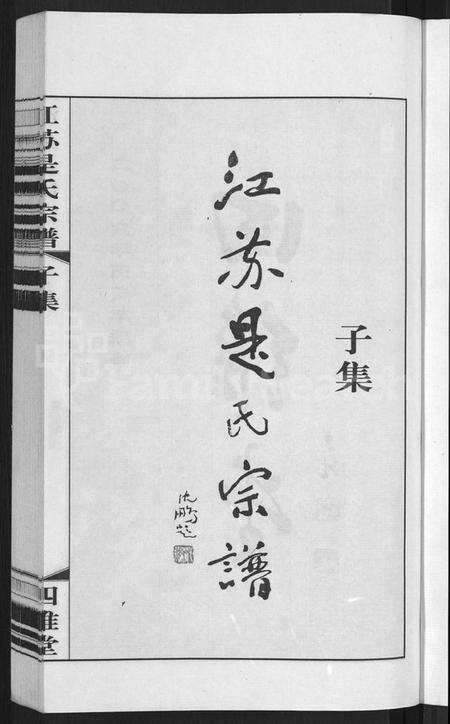 子集
江苏是氏宗譜
沈鹏题
江苏是氏宗譜
子集
四維堂